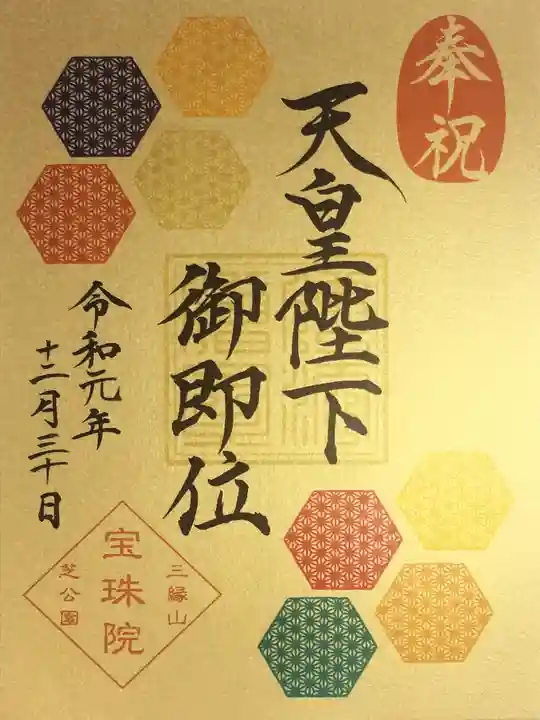 奉祝
天皇陛下
御即位
令和元年
十二月三十日
三縁山
宝珠院
芝公園